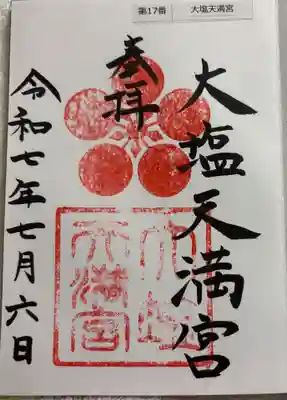 第17番 大塩天満宮
奉拝
大塩天満宮
令和七年七月六日
大塩天満宮